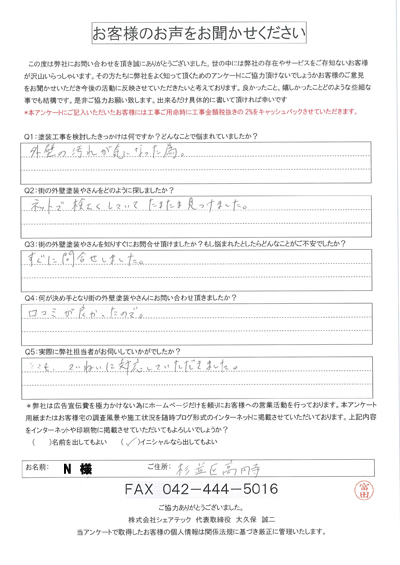 お客様のお声をお聞かせください
この度は弊社にお問い合わせを頂き誠にありがとうございました。世の中には弊社の存在やサービスをご存知ないお客様
が沢山いらっしゃいます。その方たちに弊社をよく知って頂くためのアンケートにご協力頂けないでしょうかお客様のご意見
をお聞かせいただき今後の活動に反映させていただきたいと考えております。良かったこと、嬉しかったことどのような些細な
事でも結構です。是非ご協力お願い致します。出来るだけ具体的に書いて頂ければ幸いです
*本アンケートにご記入いただいたお客様には工事ご用命時に工事金額税抜きの2%をキャッシュバックさせていただきます。
Q1:塗装工事を検討したきっかけは何ですか?どんなことで悩まれていましたか?
外壁の汚れが気になった為。
Q2:街の外壁塗装やさんをどのように探しましたか?
ネットで検さくしていて たまたま見つけました。
Q3:街の外壁塗装やさんを知りすぐにお問合せ頂けましたか?もし悩まれたとしたらどんなことがご不安でしたか?
すぐに問合せしました。
Q4:何が決め手となり街の外壁塗装やさんにお問い合わせ頂きましたか?
口コミが良かったので。
Q5:実際に弊社担当者がお伺いしていかがでしたか?
とても、ていねいに対応していただきました。
*弊社は広告宣伝費を極力かけない為にホームページだけを頼りにお客様への営業活動を行っております。本アンケート
用紙またはお客様宅の調査風景や施工状況を随時ブログ形式のインターネットに掲載させていただいております。上記内容
をインターネットや印刷物に掲載させていただいてもよろしいでしょうか?
( )名前を出してもよい (✓)イニシャルなら出してもよい
お名前: N 様 ご住所: 杉並区高円寺
FAX 042-444-5016
ご協力ありがとうございました。
株式会社シェアテック 代表取締役 大久保 誠二
当アンケートで取得したお客様の個人情報は関係法規に基づき厳正に管理いたします。